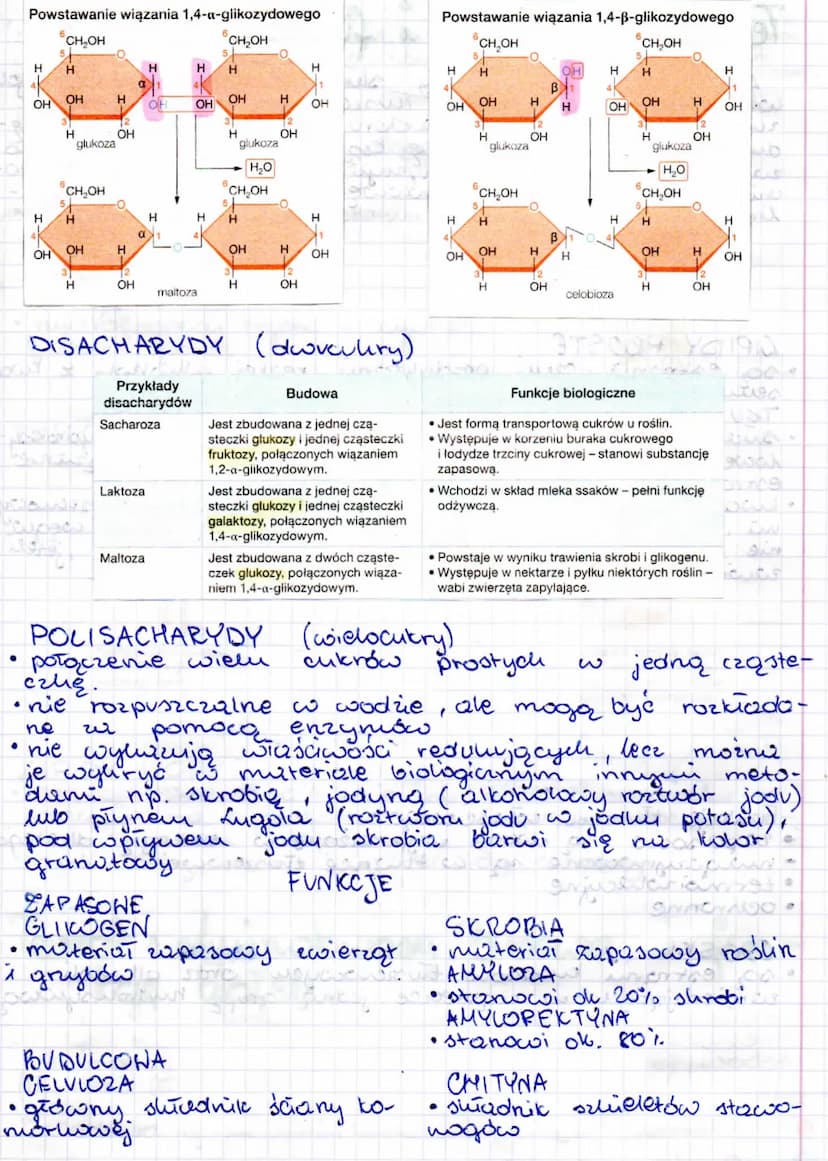 Powstawanie wiązania 1,4-α-glikozydowego
⁶CH₂OH ⁶CH₂OH
5 O 5 O
H H H H H H
4 α 1 4 1
OH OH H OH OH OH H OH
3 2 3 2
H OH H OH
glukoza glukoza
H₂O
⁶CH₂OH ⁶CH₂OH
5 O 5 O
H H H H H H
4 α 1 4 1
OH OH H O OH H OH
3 2 3 2
H OH H OH
maltoza
Powstawanie wiązania 1,4-β-glikozydowego
⁶CH₂OH ⁶CH₂OH
5 O 5 O
H H OH H H H
4 β 1 4 1
OH OH H H OH OH H OH
3 2 3 2
H OH H OH
glukoza glukoza
H₂O
⁶CH₂OH ⁶CH₂OH
5 O 5 O
H H H H H
4 β 1 O 4 1
OH OH H H OH H OH
3 2 3 2
H OH H OH
celobioza
DISACHARYDY (dwucukry)
Przykłady
disacharydów
Budowa
Funkcje biologiczne
Sacharoza
Jest zbudowana z jednej czą-
steczki glukozy i jednej cząsteczki
fruktozy, połączonych wiązaniem
1,2-α-glikozydowym.
• Jest formą transportową cukrów u roślin.
• Występuje w korzeniu buraka cukrowego
i łodydze trzciny cukrowej – stanowi substancję
zapasową.
Laktoza
Jest zbudowana z jednej czą-
steczki glukozy i jednej cząsteczki
galaktozy, połączonych wiązaniem
1,4-α-glikozydowym.
• Wchodzi w skład mleka ssaków – pełni funkcję
odżywczą.
Maltoza
Jest zbudowana z dwóch cząste-
czek glukozy, połączonych wiąza-
niem 1,4-α-glikozydowym.
• Powstaje w wyniku trawienia skrobi i glikogenu.
• Występuje w nektarze i pyłku niektórych roślin –
wabi zwierzęta zapylające.
POLISACHARYDY (wielocukry)
• połączenie wielu cukrów prostych w jedną cząste-
czkę.
• nie rozpuszczalne w wodzie, ale mogą być rozkłada-
ne za pomocą enzymów
• nie wykazują właściwości redukujących, lecz można
je wykryć w materiale biologicznym innymi meto-
dami np. skrobię, jodyną (alkoholowy roztwór jodu)
lub płynem Lugola (roztworu jodu w jodku potasu),
pod wpływem jodu skrobia barwi się na kolor
granatowy
FUNKCJE
ZAPASOWE
GLIKOGEN
• materiał zapasowy zwierząt
i grzybów
SKROBIA
• materiał zapasowy roślin
AMYLOZA
• stanowi ok 20% skrobi
AMYLOPEKTYNA
• stanowi ok. 80%
BUDULCOWA
CELULOZA
• główny składnik ściany ko-
mórkowej
CHITYNA
• składnik szkieletów stawo-
nogów